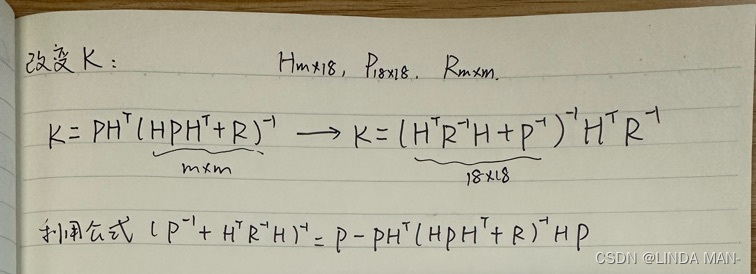 改变K: Hm×18, P18×18, Rm×m.
K=PHᵀ(HPHᵀ+R)⁻¹ → K=(HᵀR⁻¹H+P⁻¹)⁻¹HᵀR⁻¹
m×m 18×18
利用公式 (P⁻¹+HᵀR⁻¹H)⁻¹=P-PHᵀ(HPHᵀ+R)⁻¹HP
CSDN @LINDA MAN-